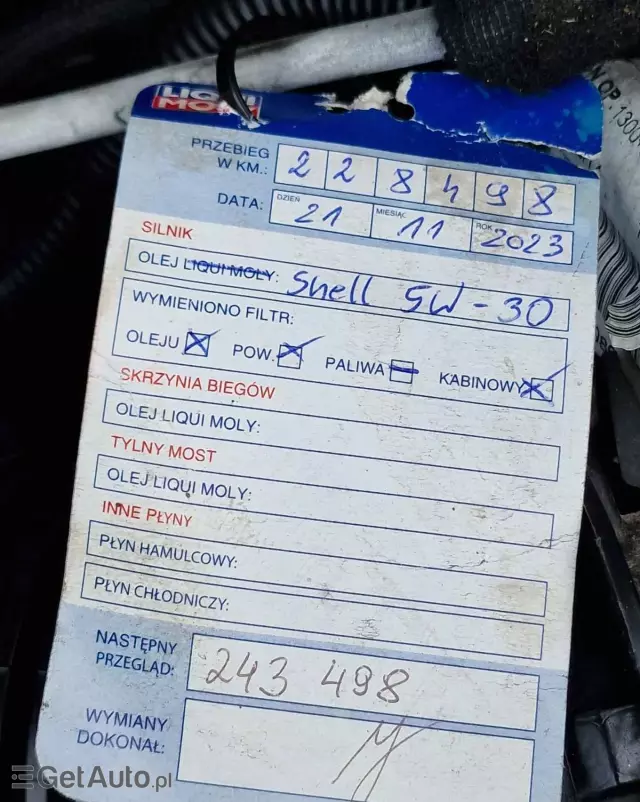 LIQUI
MOLY
PRZEBIEG
W KM.: 228498
DATA: DZIEŃ 21 MIESIĄC 11 ROK 2023
SILNIK
OLEJ LIQUI MOLY: Shell 5W-30
WYMIENIONO FILTR:
OLEJU POW. PALIWA KABINOWY
SKRZYNIA BIEGÓW
OLEJ LIQUI MOLY:
TYLNY MOST
OLEJ LIQUI MOLY:
INNE PŁYNY
PŁYN HAMULCOWY:
PŁYN CHŁODNICZY:
NASTĘPNY
PRZEGLĄD: 243 498
WYMIANY
DOKONAŁ:
GetAuto.pl